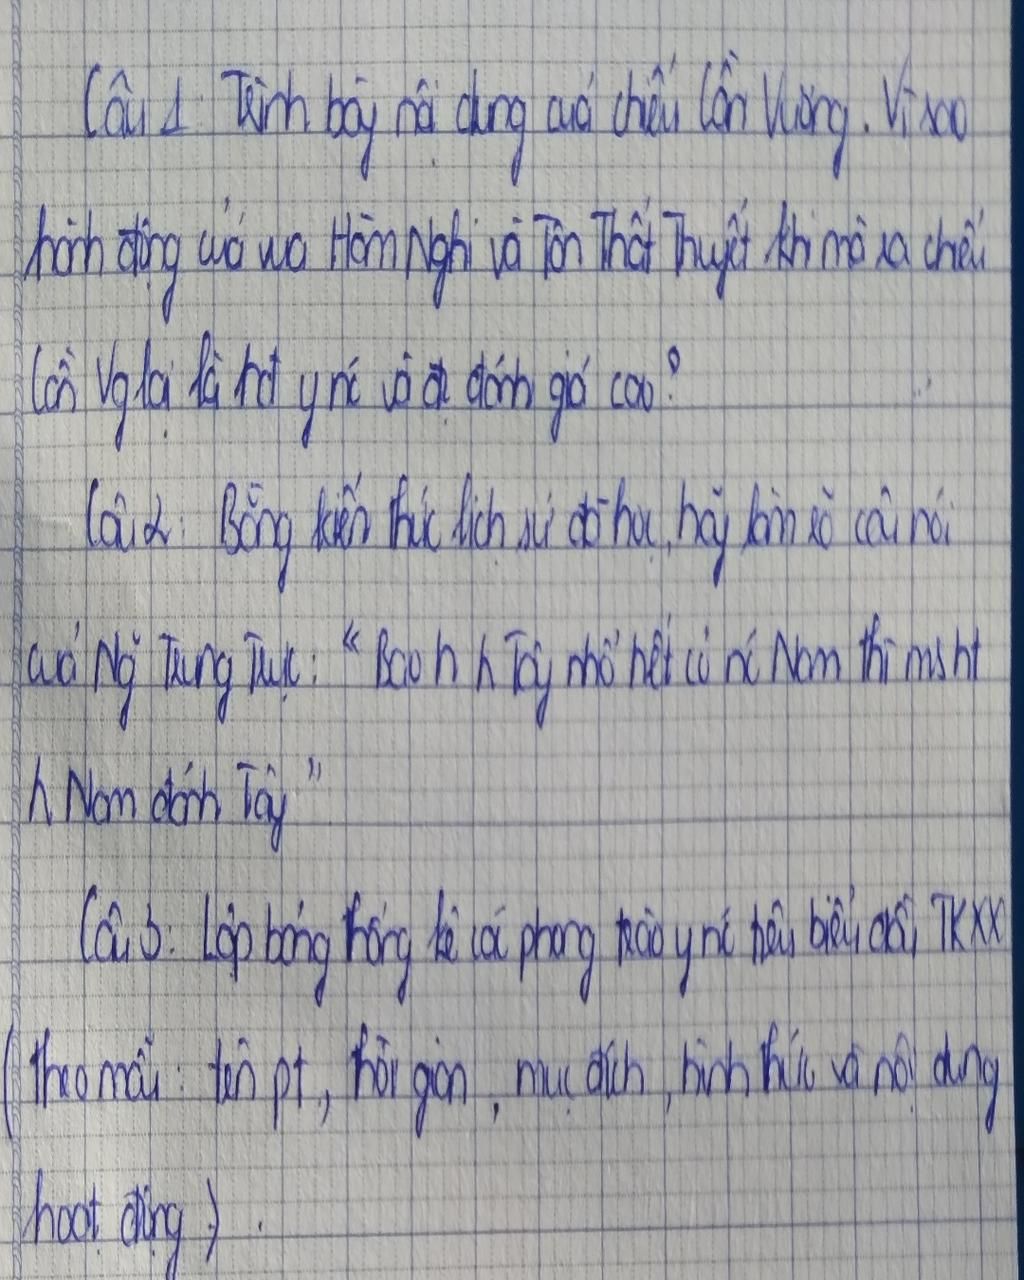 Câu 1: Trình bày nội dung của chiếu Cần Vương. Vì sao
hành động của vua Hàm Nghi và Tôn Thất Thuyết khi mở ra chiếu
Cần Vg lại là hđ y nc và đc đánh giá cao?
Câu 2: Bằng kiến thức lịch sử đã học, hãy làm rõ câu nói
của Ng~ Trung Trực: "Bao h h Tây nhổ hết cỏ nc Nam thì ms ht
h Nam đánh Tây"
Câu 3: Lập bảng thống kê các phong trào y nc tiêu biểu đầu TK XX
(theo mẫu: tên pt, thời gian, mục đích, hình thức và nội dung
hoạt động).